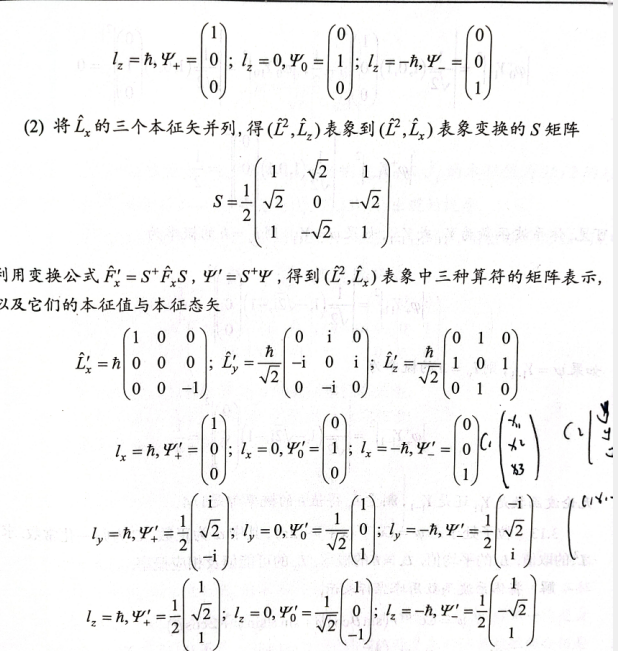 l_z = ħ, Ψ_+ = (1 0 0); l_z = 0, Ψ_0 = (0 1 0); l_z = -ħ, Ψ_- = (0 0 1)
(2) 将 L̂_x 的三个本征矢并列, 得 (L̂², L̂_z) 表象到 (L̂², L̂_x) 表象变换的 S 矩阵
S = 1/2 (1 √2 1; √2 0 -√2; 1 -√2 1)
利用变换公式 F̂'_x = S⁺F̂_xS, Ψ' = S⁺Ψ, 得到 (L̂², L̂_x) 表象中三种算符的矩阵表示,
以及它们的本征值与本征态矢
L̂'_x = ħ (1 0 0; 0 0 0; 0 0 -1); L̂'_y = ħ/√2 (0 i 0; -i 0 i; 0 -i 0); L̂'_z = ħ/√2 (0 1 0; 1 0 1; 0 1 0)
l_x = ħ, Ψ'_+ = (1 0 0); l_x = 0, Ψ'_0 = (0 1 0); l_x = -ħ, Ψ'_- = (0 0 1)
l_y = ħ, Ψ'_+ = 1/2 (i √2 -i); l_y = 0, Ψ'_0 = 1/√2 (1 0 1); l_y = -ħ, Ψ'_- = 1/2 (-i √2 i)
l_z = ħ, Ψ'_+ = 1/2 (1 √2 1); l_z = 0, Ψ'_0 = 1/√2 (1 0 -1); l_z = -ħ, Ψ' = 1/2 (1 -√2 1)